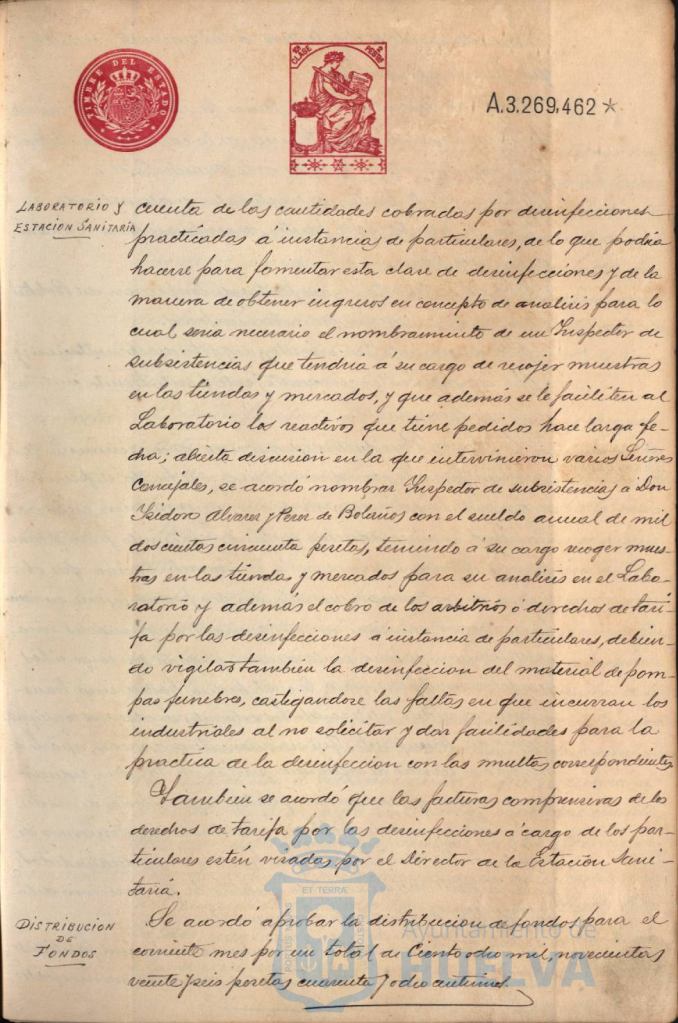 TIMBRE DEL ESTADO
10ª CLASE 2 PESETAS
A.3.269.462 *
LABORATORIO Y
ESTACION SANITARIA
cuenta de las cantidades cobradas por desinfecciones
practicadas á instancias de particulares, de lo que podria
hacerse para fomentar esta clase de desinfecciones y de la
manera de obtener ingresos en concepto de analisis para lo
cual seria necesario el nombramiento de un Inspector de
subsistencias que tendria á su cargo de recojer muestras
en las tiendas y mercados, y que además se le faciliten al
Laboratorio los reactivos que tiene pedidos hace larga fe-
cha; abierta discusion en la que intervinieron varios Señores
Concejales, se acordó nombrar Inspector de subsistencias á Don
Isidoro Alvarez y Perez de Bolaños con el sueldo anual de mil
doscientas cincuenta pesetas, teniendo á su cargo recoger mues-
tras en las tiendas y mercados para su analisis en el Labo-
ratorio y además el cobro de los arbitrios ó derechos de tari-
fa por las desinfecciones á instancia de particulares, debien-
do vigilar tambien la desinfeccion del material de pom-
pas funebres, castigandose las faltas en que incurran los
industriales al no solicitar y dar facilidades para la
practica de la desinfeccion con las multas correspondientes
Tambien se acordó que las facturas comprensivas de los
derechos de tarifa por las desinfecciones á cargo de los par-
ticulares estén visadas por el Director de la Estación Sani-
taria.
DISTRIBUCION
DE
FONDOS
Se acordó aprobar la distribucion de fondos para el
corriente mes por un total de Ciento ocho mil, novecientas
veinte y seis pesetas cuarenta y ocho centimos.
ET TERRÆ
Ayuntamiento de
HUELVA